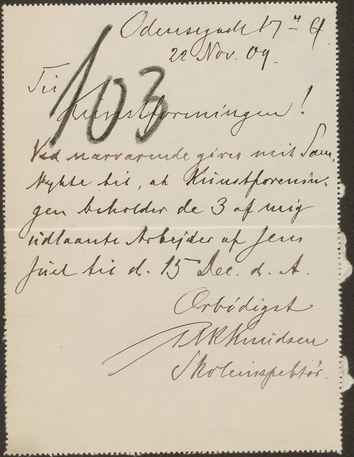 Odensegade 17
22 Nov. 09.
103
Til
Kunstforeningen!
Ved nærværende gives mit Sam-
tykke til, at Kunstforenin-
gen beholder de 3 af mig
udlaante Arbejder af Jens
Juel til d. 15 Dec. d. A.
Ærbødigst
Knudsen
Skoleinspektør.